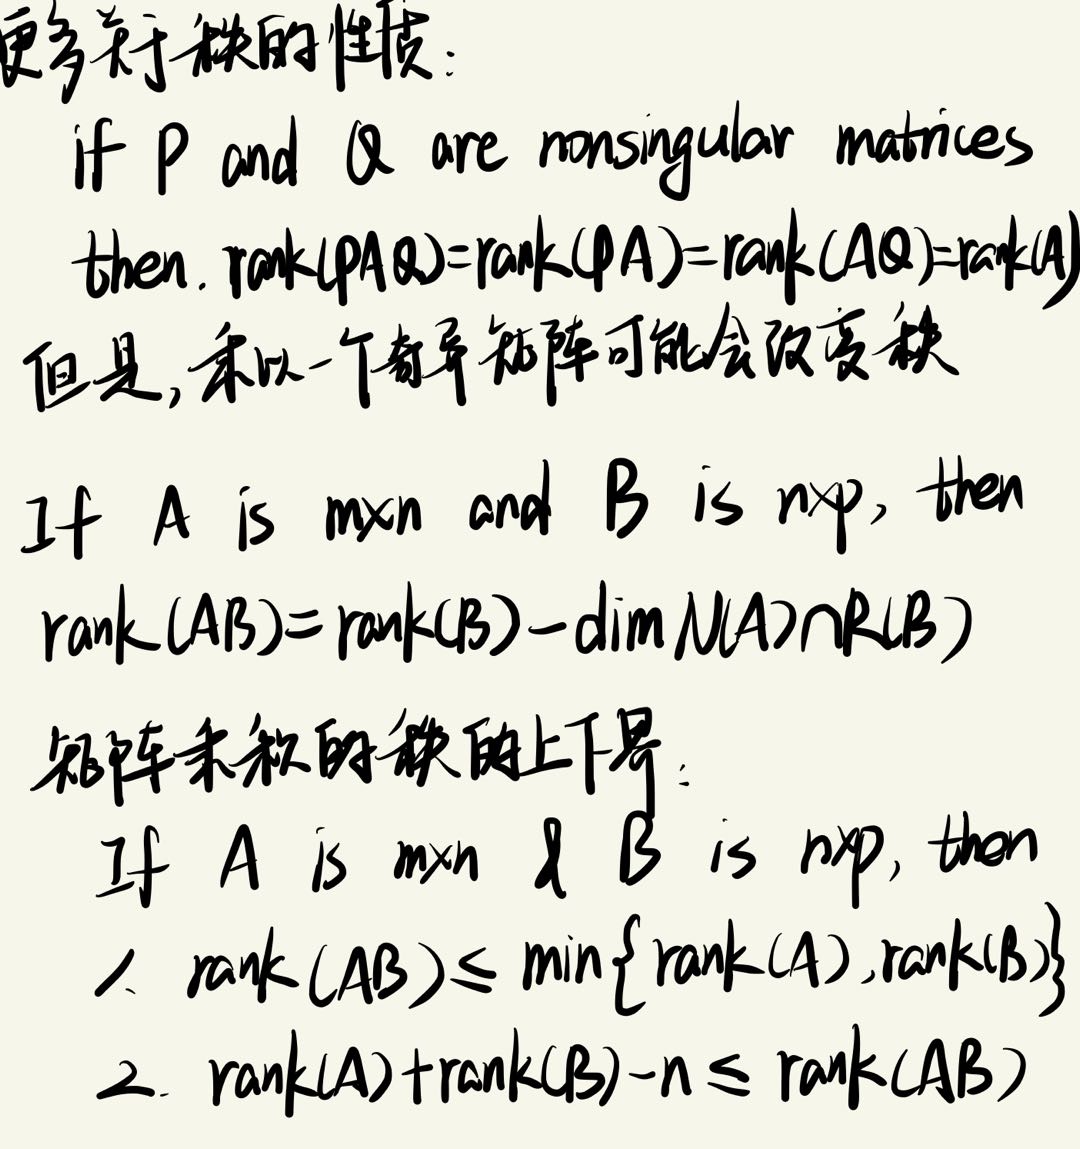 更多关于秩的性质:
if P and Q are nonsingular matrices
then. rank(PAQ)=rank(PA)=rank(AQ)=rank(A)
但是,乘以一个奇异矩阵可能会改变秩
If A is m×n and B is n×p, then
rank(AB)=rank(B)-dim N(A)∩R(B)
矩阵乘积的秩的上下界:
If A is m×n & B is n×p, then
1. rank(AB)≤ min{rank(A),rank(B)}
2. rank(A)+rank(B)-n ≤ rank(AB)